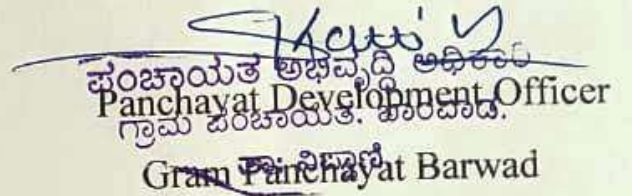 ಪಂಚಾಯತ ಅಭಿವೃದ್ಧಿ ಅಧಿಕಾರಿ
Panchayat Development Officer
ಗ್ರಾಮ ಪಂಚಾಯತ. ಬಾರವಾಡ.
ತಾ. ನಿಪ್ಪಾಣಿ
Gram Panchayat Barwad